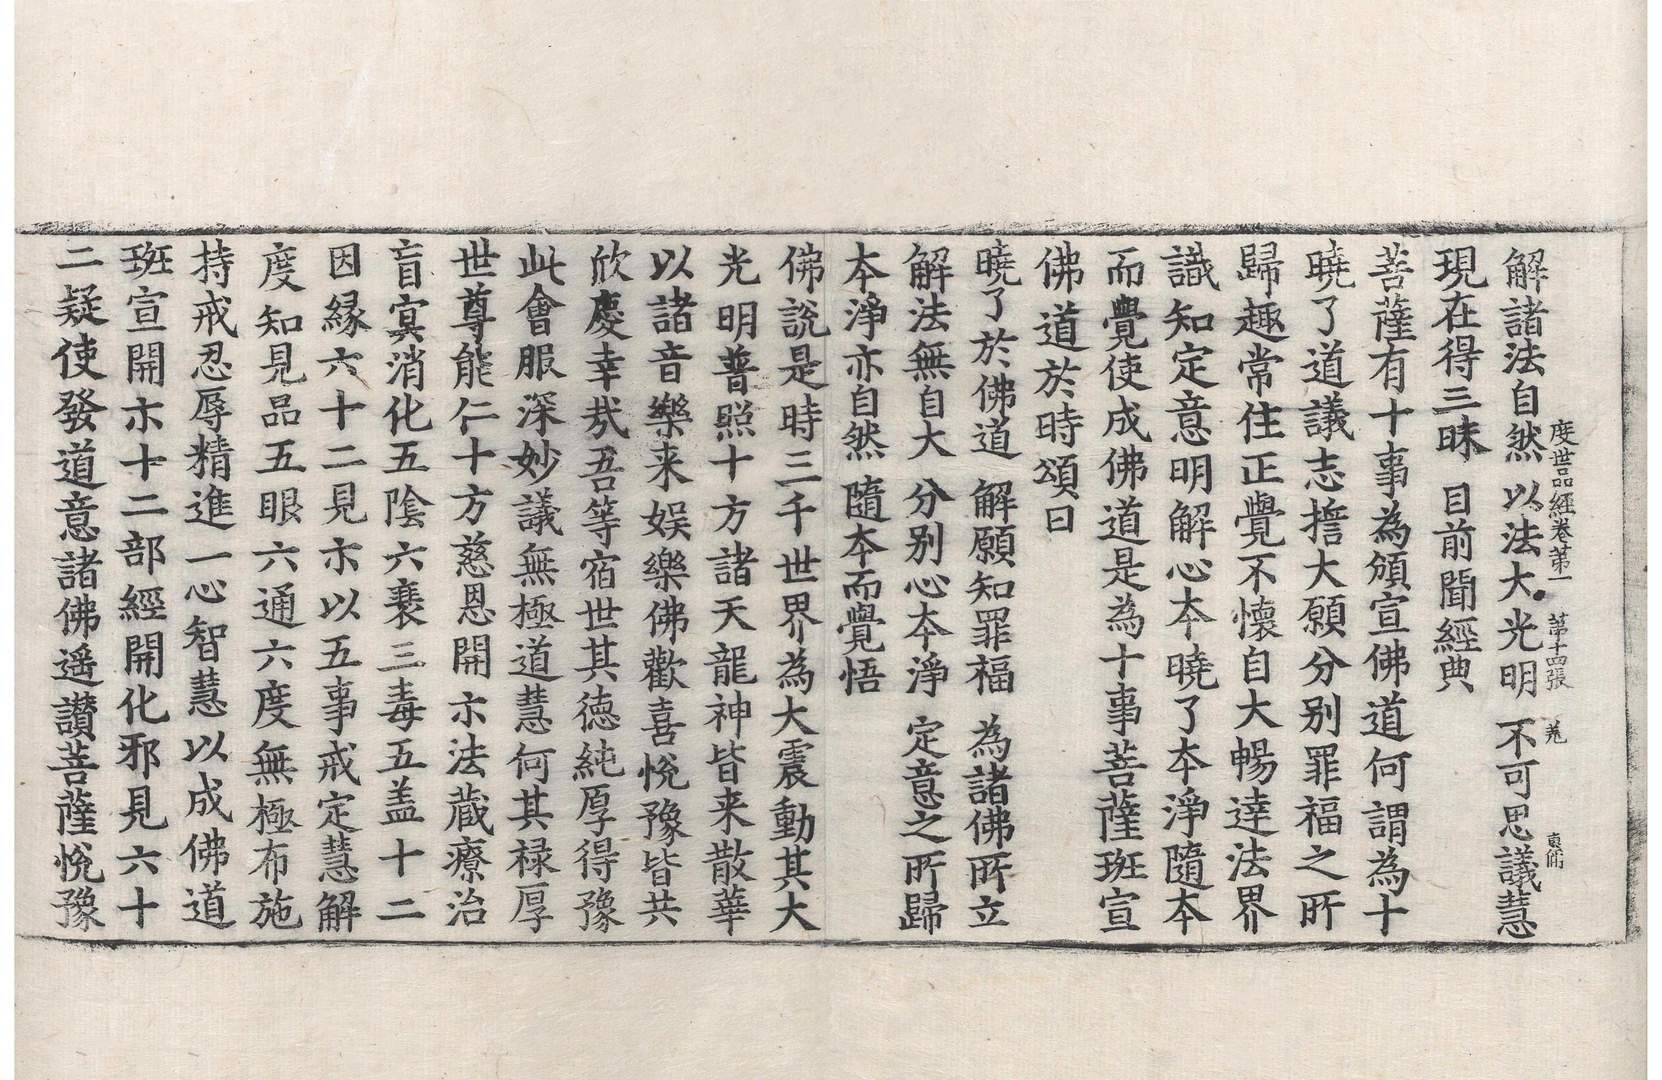 度世品經卷第一 第十四張 𠒋
解諸法自然 以法大光明 不可思議慧
現在得三昧 目前聞經典
菩薩有十事為頒宣佛道何謂為十
曉了道議志擔大願分別罪福之所
歸趣常住正覺不懷自大暢達法界
識知定意明解心本曉了本淨隨本
而覺使成佛道是為十事菩薩班宣
佛道於時頌曰
曉了於佛道 解願知罪福 為諸佛所立
解法無自大 分別心本淨 定意之所歸
本淨亦自然 隨本而覺悟
佛說是時三千世界為大震動其大
光明普照十方諸天龍神皆来散華
以諸音樂来娱樂佛歡喜悅豫皆共
欣慶幸㢤吾等宿世其德純厚得豫
此會服深妙議無極道慧何其禄厚
世尊能仁十方慈恩開示法藏療治
盲㝠消化五陰六衰三毒五盖十二
因緣六十二見示以五事戒定慧解
度知見品五眼六通六度無極布施
持戒忍辱精進一心智慧以成佛道
班宣開示十二部經開化邪見六十
二疑使發道意諸佛遥讃菩薩悅豫